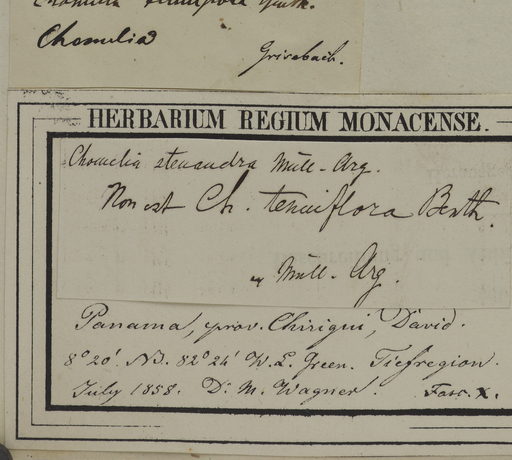 Chomelia tenuiflora Benth.
Chomelia
Grisebach.
HERBARIUM REGIUM MONACENSE.
Chomelia stenandra Müll-Arg.
Non est Ch. tenuiflora Benth.
Müll-Arg.
Panama, prov. Chiriqui, David.
8° 20' NB. 82° 24' W.L. Green. Tiefregion.
July 1858. Dr. M. Wagner. Fasc. X.